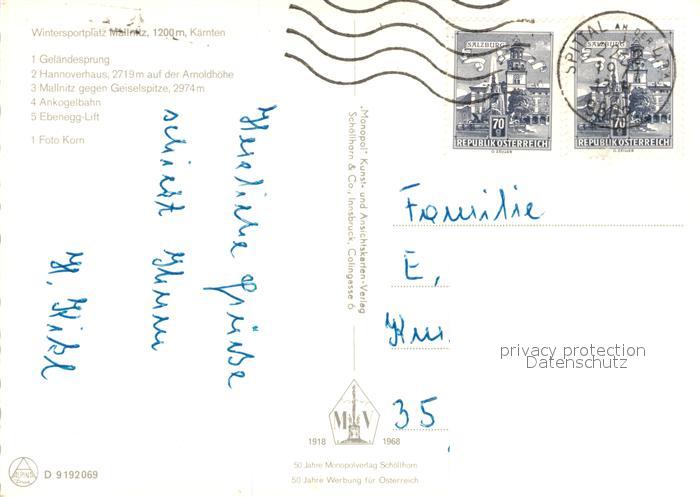 Wintersportplatz Mallnitz, 1200 m, Kärnten
1 Geländesprung
2 Hannoverhaus, 2719 m auf der Arnoldhöhe
3 Mallnitz gegen Geiselspitze, 2974 m
4 Ankogelbahn
5 Ebenegg-Lift
1 Foto Korn
Herzliche Grüße
schickt Ihnen
„Monopol" Kunst- und Ansichtskarten-Verlag
Schöllhorn & Co., Innsbruck, Colingasse 6
SALZBURG
70 g
REPUBLIK ÖSTERREICH
SALZBURG
70 g
REPUBLIK ÖSTERREICH
SPITTAL AN DER DRAU
Familie
E,
35
privacy protection
Datenschutz
M V
1918 1968
50 Jahre Monopolverlag Schöllhorn
50 Jahre Werbung für Österreich
ALPINA
D 9192069